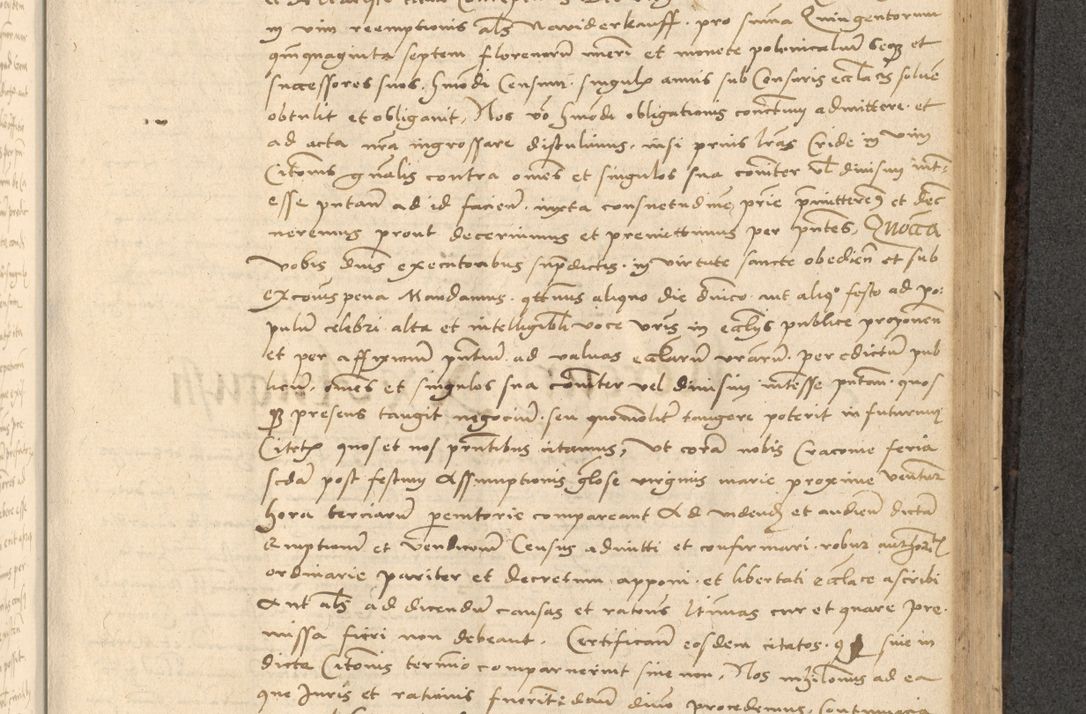 in vim reemptionis als Wariderkauff pro suma Quingentorum
quinquaginta septem florenorum numeri et monete polonicalium seqz et
successores suos hmodi Censum singulz annis sub Censuris ecclacis solue
obtulit et obligauit, Nos vo hmodi obligationis contctum admittere et
ad acta nra ingrossare distulimus nisi prius lras Cride in vim
Citonis gnalis contra omes et singulos sua comiter vl diuisim int-
esse putan ad id facien iuxta consuetudine prie pmittereq et dec
neremus prout decernimus et premittimus per pntes, Quocca
vobis dnis executoribus supdictis in virtute sancte obedien et sub
excois pena Mandamus qtnus aliquo die dnico aut aliq festo ad po:
pulu celebri alta et intelligibli voce vris in ecclijs publice proponen
et per affixium pntium ad valuas ecclarum vrarum per edictum pub
licum omes et singulos sua comiter vel diuisim interesse putan quos
presens tangit negocium seu quomolit tangere poterit in futurum
Citetz quos et nos pntibus citamus, Ut cora nobis Cracouie feria
scda post festum Assumptionis glose virginis marie proxime ventur
hora terciarum peremtorie compareant Ad videnz et audien dictam
Emptionem et Vendicoem Census admitti et confirmari robur authoritis
ordinarie pariter et decretum apponi et libertati ecclace ascribi
Aut als ad dicendum causas et ratones ltimas cur et quare pre-
missa fieri non debeant. Certifican eosdem citatos q siue in
dicte Citonis termino comparuerint siue non, Nos nihilomus ad ea
que Juris et rationis fuerint dante dno procedemus, contumacia